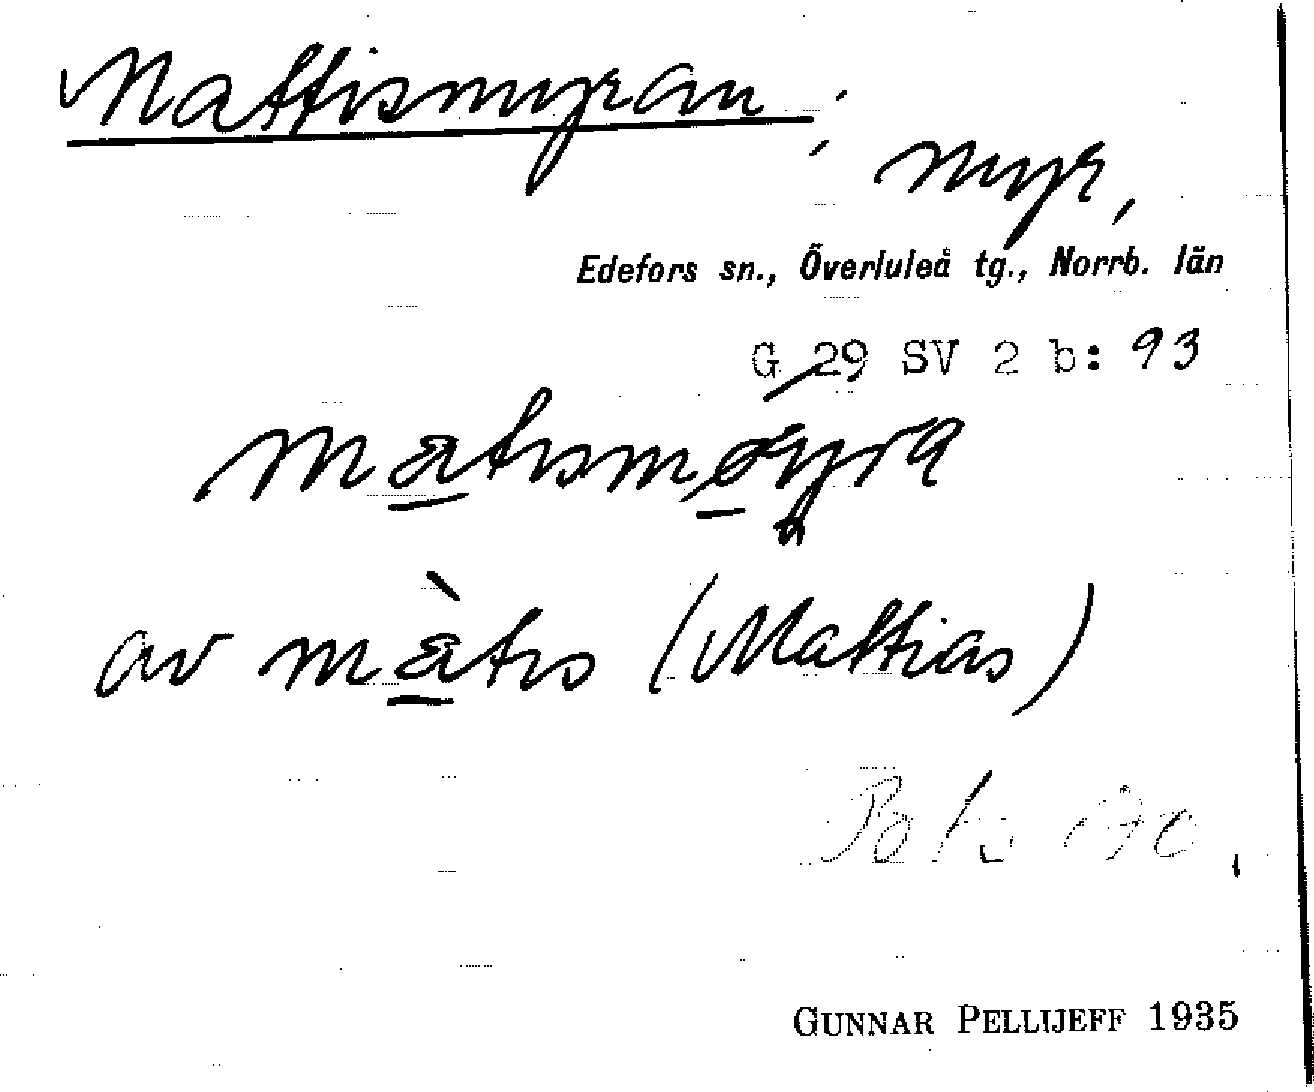 Mattismyran;
myr,
Edefors sn., Överluleå tg., Norrb. län
G 29 SV 2 b: 93
matısmøyra
av màtıs (Mattias)
GUNNAR PELLIJEFF 1935